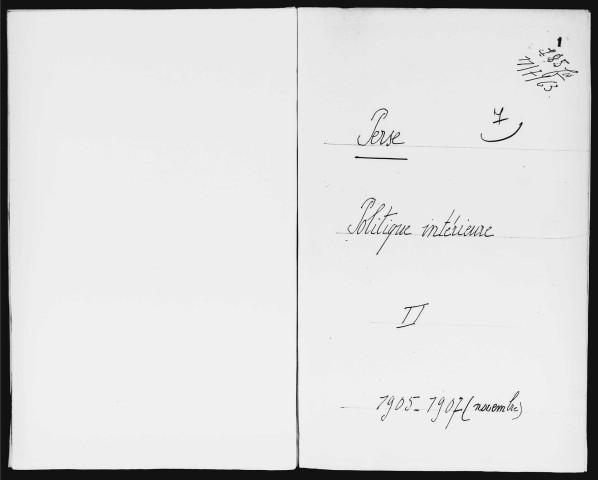 1
Perse 7
Politique intérieure
II
1905-1907 (novembre)